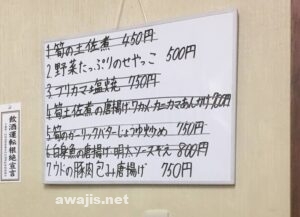 1 筍の土佐煮 450円
2 野菜たっぷりのせやっこ 500円
3 ブリカマ塩焼 750円
4 筍土佐煮の唐揚げワカメ・カニカマあんかけ 700円
5 筍のガーリックバターじょうゆ炒め 750円
6 白身魚の唐揚げ明太ソースそえ 800円
7 ウドの豚肉包み唐揚げ 750円
飲酒運転根絶宣言
awajis.net